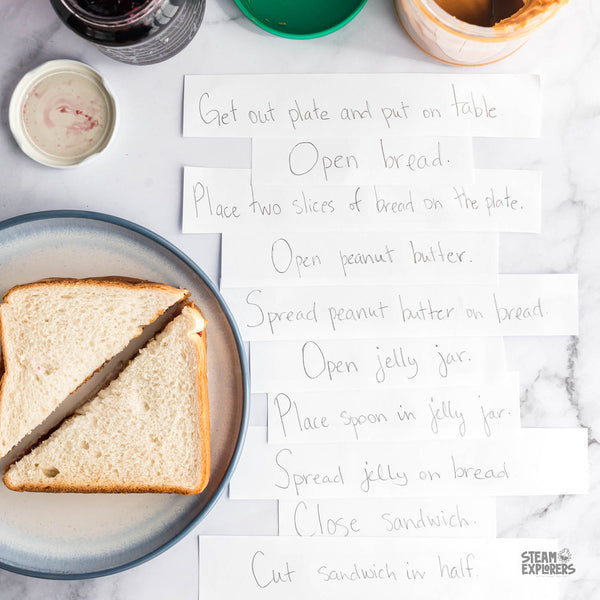 Get out plate and put on table
Open bread.
Place two slices of bread on the plate.
Open peanut butter.
Spread peanut butter on bread.
Open jelly jar.
Place spoon in jelly jar.
Spread jelly on bread
Close sandwich.
Cut sandwich in half.
STEAM
EXPLORERS